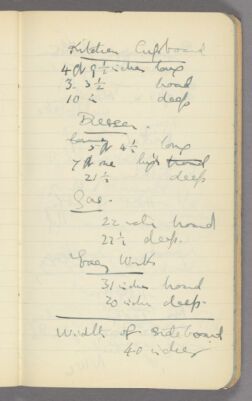 Kitchen Cupboard
4 ft 9 ½ inches long
3 - 3 ½ broad
10 in deep
Dresser
5 ft 4 ½ long
7 ft one high broad
21 ½ deep
Gas.
22 inches broad
22 ½ deep.
Easy Work
31 inches broad
20 inches deep.
Width of sideboard
40 inches